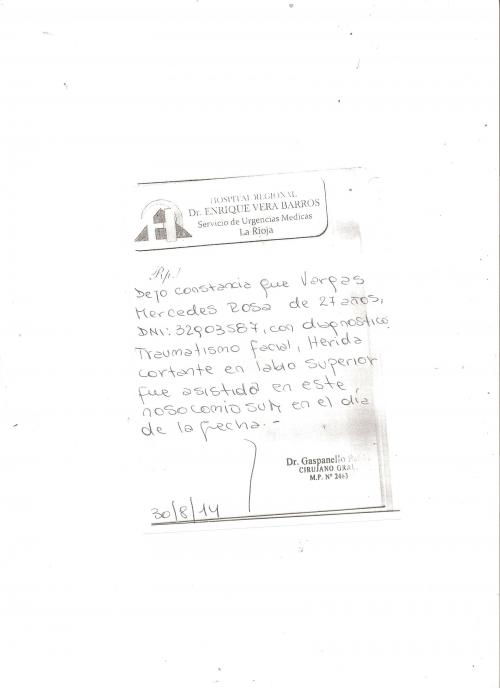 HOSPITAL REGIONAL
Dr. ENRIQUE VERA BARROS
Servicio de Urgencias Medicas
La Rioja
Rp/
Dejo constancia que Vargas
Mercedes Rosa de 27 años,
DNI: 32903587, con diagnostico
Traumatismo facial, Herida
cortante en labio superior
fue asistida en este
nosocomio SUM en el día
de la fecha.-
Dr. Gaspanello
CIRUJANO GRAL.
M.P. Nº 2463
30/8/14